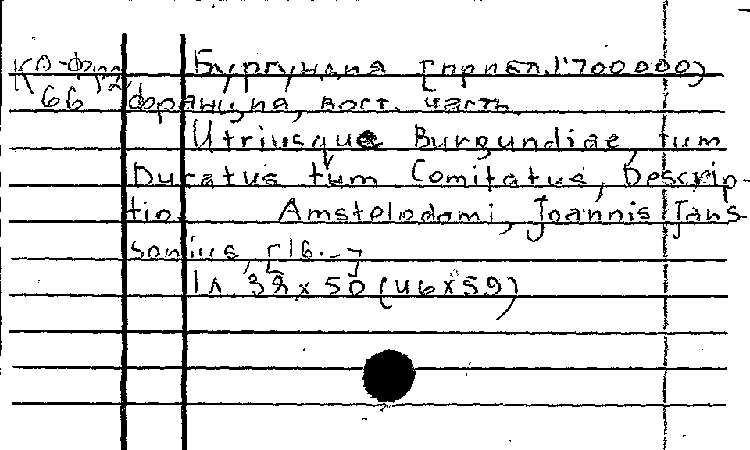 К0-Фр2 Бургундия [прибл. 1:700000]
66 Франция, вост. часть.
Utriusque Burgundiae, tum
Ducatus tum Comitatus, Descrip-
tio. Amstelodami, Joannis Jans
sonius, [16..-]
1 л. 38 x 50 (46x59)